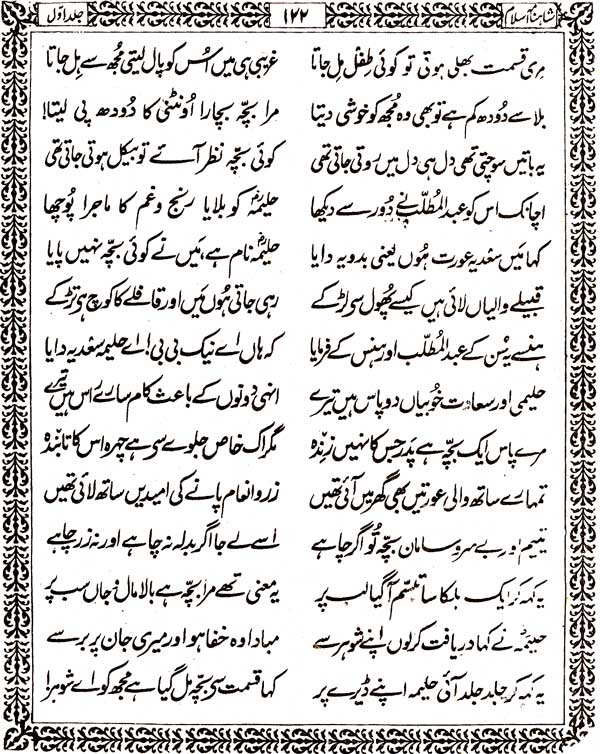 شاہنامۂ اسلام ۱۲۲ جلد اول
مری قسمت بھلی ہوتی تو کوئی طفل مل جاتا غریبی ہی میں اُس کو پال لیتی مُجھ سے ہِل جاتا
بلا سے دُودھ کم ہے تو بھی وہ مُجھ کو خوشی دیتا مرا بچّہ بچارا اُونٹنی کا دُودھ پی لیتا!
یہ باتیں سوچتی تھی دل ہی دل میں روتی جاتی تھی کوئی بچّہ نظر آئے تو بیکل ہوتی جاتی تھی
اچانک اس کو عبدالمُطلّب نے دُور سے دیکھا حلیمہؓ کو بلایا رنج و غم کا ماجرا پُوچھا
کہا میں سعدیہ عورت ہُوں یعنی بدویہ دایا حلیمہؓ نام ہے، مَیں نے کوئی بچّہ نہیں پایا
قبیلے والیاں لائی ہیں کیسے پھُول سی لڑکے رہی جاتی ہُوں مَیں اور قافلے کا کوچ ہی تڑکے
ہنسے یہ سُن کے عبدالمُطلّب اور ہنس کے فرمایا کہ ہاں اے نیک بی بی! اے حلیمہ سعدیہ دایا
حلیمی اور سعادت خُوبیاں دو پاس ہیں تیرے انہی دونوں کے باعث کام سارے راس ہیں تیرے
مرے پاس ایک بچّہ ہے پدر جس کا نہیں زِندہ مگر اک خاص جلوے سی ہے چہرہ اس کا تابندہ
تمہارے ساتھ والی عورتیں بھی گھر میں آئی تھیں زر و انعام پانے کی امیدیں ساتھ لائی تھیں
یتیم اور بے سروسامان بچّہ تُو اگر چاہے اسے لے جا اگر بدلہ نہ چاہے اور نہ زر چاہے
یہ کہہ کر ایک ہلکا سا تبسّم آ گیا لب پر یہ معنی تھے مرا بچّہ ہے بالا مال و جاں سب پر
حلیمہؓ نے کہا دریافت کر لوں اپنے شوہر سے مبادا وہ خفا ہو اور میری جان پر برسے
یہ کہہ کر جلد جلد آئی حلیمہ اپنے ڈیرے پر کہا قسمت سی بچّہ مل گیا ہے مجھ کو اے شوہر!